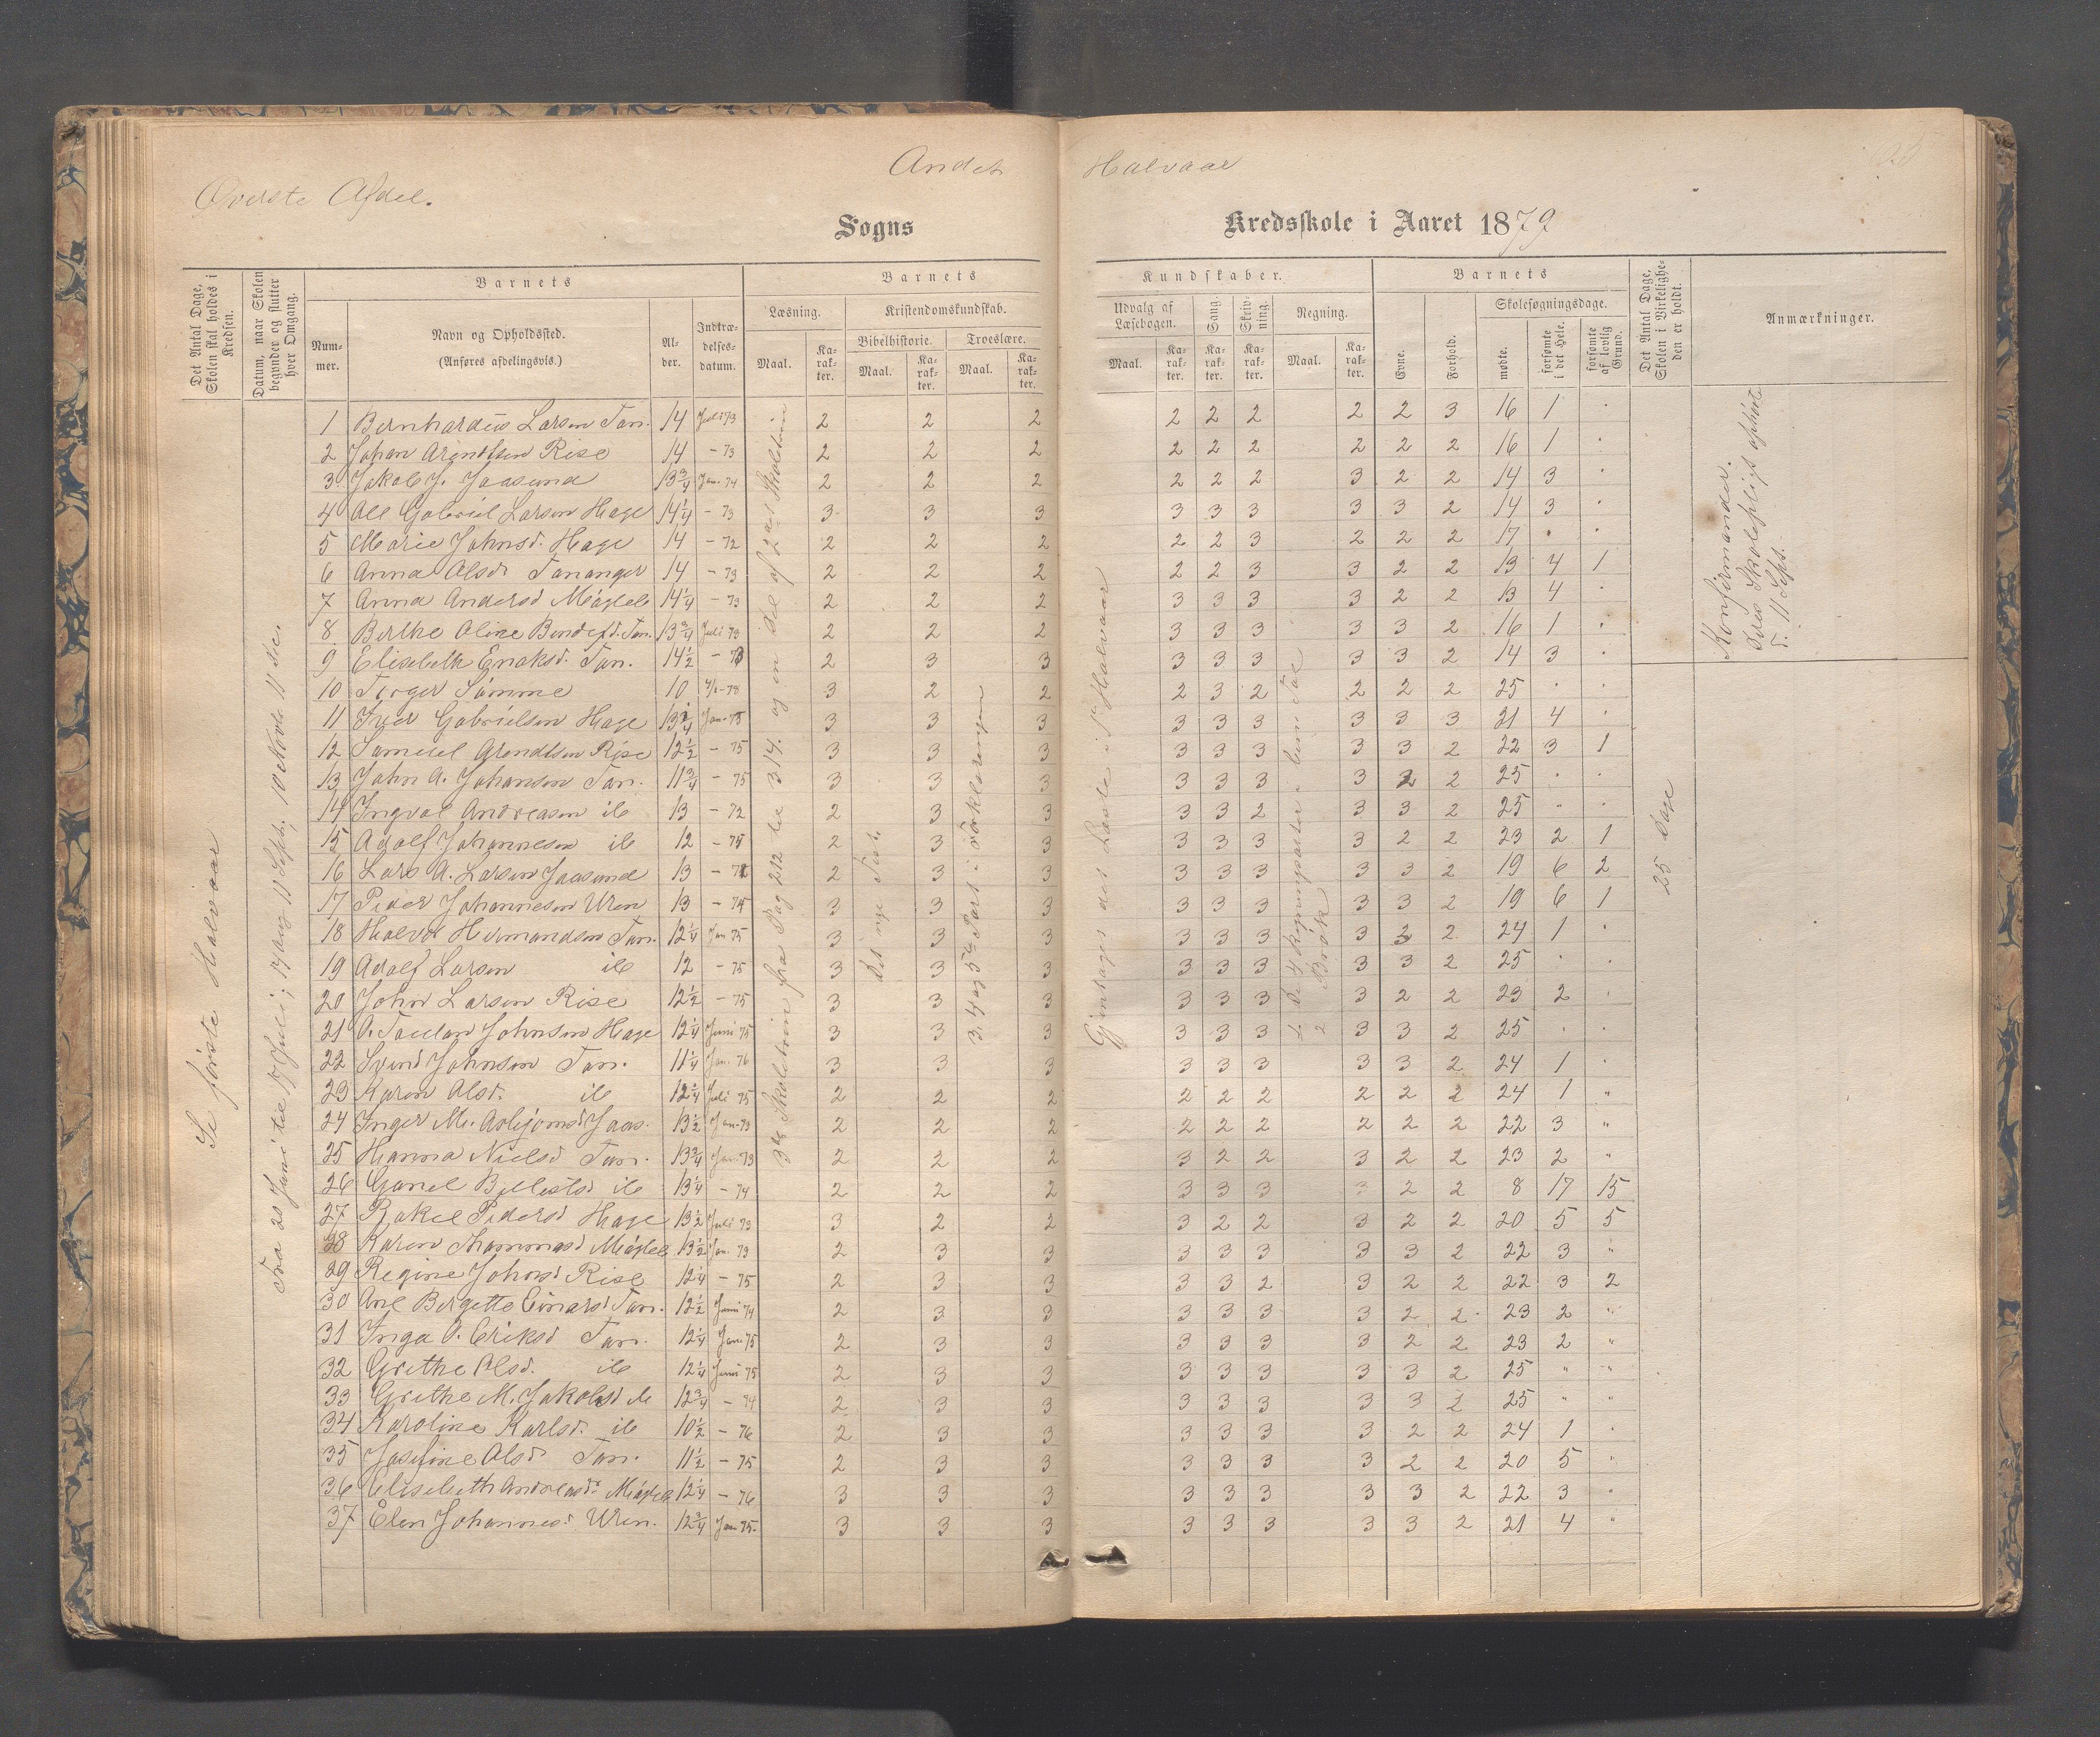 Andet Halvaar
Øverste Afdel.
Sogns Kredsskole i Aaret 1879
Det Antal Dage, Skolen skal holdes i Kredsen.
Datum, naar Skolen begynder og slutter hver Omgang.
Barnets
Nummer.
Navn og Opholdssted.
(Anføres afdelingsvis.)
Alder.
Indtrædelsesdatum.
Barnets
Læsning.
Maal.
Karakter.
Kristendomskundskab.
Bibelhistorie.
Maal.
Karakter.
Troeslære.
Maal.
Karakter.
Kundskaber.
Udvalg af Læsebogen.
Maal.
Karakter.
Sang.
Karakter.
Skrivning.
Karakter.
Regning.
Maal.
Karakter.
Barnets
Evne.
Forhold.
Skolesøgningsdage.
mødte.
forsømte i det Hele.
forsømte af lovlig Grund.
Det Antal Dage, Skolen i Virkeligheden er holdt.
Anmærkninger.
Se første Halvaar
Fra 20 Juni til 17 Juli; 17 Aug 11 Sept. 10 Novbr 11 Dec.
3de Skoletrin fra Pag 212 til 314. og en Del af 2det Skoletrin
Det nye Test.
3. 4 og 5te Part i Forklaringen
Gjentages det Læste i 1ste Halvaar
1. De 4 Regningsarter i hele Tal
2 Brøk
25 Dage
Konfirmander.
Deres Skolepligt ophørte
d. 11 Sept.
1 Bernhardus Larsen Tan. 14 Juli 73 2 2 2 2 2 2 2 2 3 16 1 .
2 Johan Arendtsen Rise 14 - 73 2 2 2 2 2 2 2 2 2 16 1 .
3 Jakob J. Jaasund 13 3/4 Jan. 74 2 2 2 2 2 2 3 2 2 14 3 .
4 Ole Gabriel Larsen Hage 14 1/4 - 73 3 3 3 3 3 3 3 3 2 14 3 .
5 Marie Johnsd. Hage 14 - 72 2 2 2 2 2 3 2 2 2 17 . .
6 Anna Olsd. Tananger 14 - 73 2 2 2 2 2 3 3 2 2 13 4 1
7 Anna Andersd Meglel 14 1/4 - 73 2 2 2 3 3 3 3 2 2 13 4 .
8 Berthe Oline Bendixd. Tan. 13 3/4 Juli 73 2 2 2 3 3 3 3 3 2 16 1 .
9 Elisebeth Enoksd. Tan. 14 1/2 - 73 2 3 3 3 3 3 3 3 2 14 3 .
10 Torger Sømme 10 4/1-78 3 2 2 2 3 2 2 2 2 25 . .
11 Iver Gabrielsen Hage 13 1/4 Jan. 75 3 3 3 3 3 3 3 3 3 21 4 .
12 Samuel Arendtsen Rise 12 1/2 - 75 3 3 3 3 3 3 3 3 2 22 3 1
13 John A. Johansen Tan. 11 3/4 - 75 3 3 3 3 3 3 3 2 2 25 . .
14 Ingval Andreasen ib 13 - 72 2 3 3 3 3 2 3 3 2 25 . .
15 Adolf Johannesen ib 12 - 74 2 3 3 3 3 3 3 2 2 23 2 1
16 Lars A. Larsen Jaasund 13 - 72 2 3 3 3 3 3 3 3 2 19 6 2
17 Peder Johannesen Uren 13 - 74 3 3 3 3 3 3 3 3 2 19 6 1
18 Halvor Hermandsen Tan. 12 1/4 Jan 75 3 3 3 3 3 3 3 3 2 24 1 .
19 Adolf Larsen ib 12 - 75 3 3 3 3 3 3 3 3 2 25 . .
20 John Larsen Rise 12 1/2 - 75 3 3 3 3 3 3 3 2 2 23 2 .
21 O. Taulan Johnsen Hage 12 1/4 Juni 75 3 3 3 3 3 3 3 3 2 25 . .
22 Svend Johnsen Tan. 11 1/4 Jan. 76 3 3 3 3 3 3 3 3 2 24 1 .
23 Karen Olsd. ib 12 1/4 Juli 75 2 2 2 2 2 2 2 2 2 24 1 "
24 Inger M. Asbjørnsd Jaas. 13 1/2 Jan. 73 2 2 2 2 2 2 2 2 2 22 3 "
25 Hanna Nielsd Tan. 13 3/4 Jan. 73 2 2 2 3 2 2 3 2 2 23 2 "
26 Gunel Bellestsd ib 13 1/4 - 74 2 2 2 3 3 3 3 2 2 8 17 15
27 Rakel Pedersd Hage 13 1/2 Juli 73 3 2 2 3 2 2 3 2 2 20 5 5
28 Karen Thommasd Meglel 13 1/2 Jan. 73 2 3 3 3 3 3 3 3 2 22 3 "
29 Regine Johnsd Rise 12 1/4 - 75 2 3 3 3 3 2 3 2 2 22 3 2
30 Ane Bergette Einarsd Tan. 12 1/2 Juni 74 2 3 3 3 3 3 3 2 2 23 2 "
31 Inga O. Eriksd Tan. 12 1/4 Jan. 75 2 3 3 3 3 3 3 2 2 23 2 "
32 Grethe Olsd. ib 12 1/4 Juni 75 2 3 3 3 3 3 3 3 2 25 " "
33 Grethe M. Jakobsd ib 12 3/4 - 74 2 3 3 3 3 3 3 3 2 25 " "
34 Karoline Karlsd. ib 10 1/2 - 76 2 3 3 3 3 3 3 2 2 24 1 .
35 Josefine Olsd Tan. 11 1/2 - 75 2 3 3 3 3 3 3 2 2 20 5 "
36 Elisebeth Andreasd. Meglel 12 1/4 - 76 3 3 3 3 3 3 3 3 2 22 3 "
37 Elen Johannesd. Uren. 12 3/4 Jan 75. 3 3 3 3 3 3 3 3 2 21 4 "